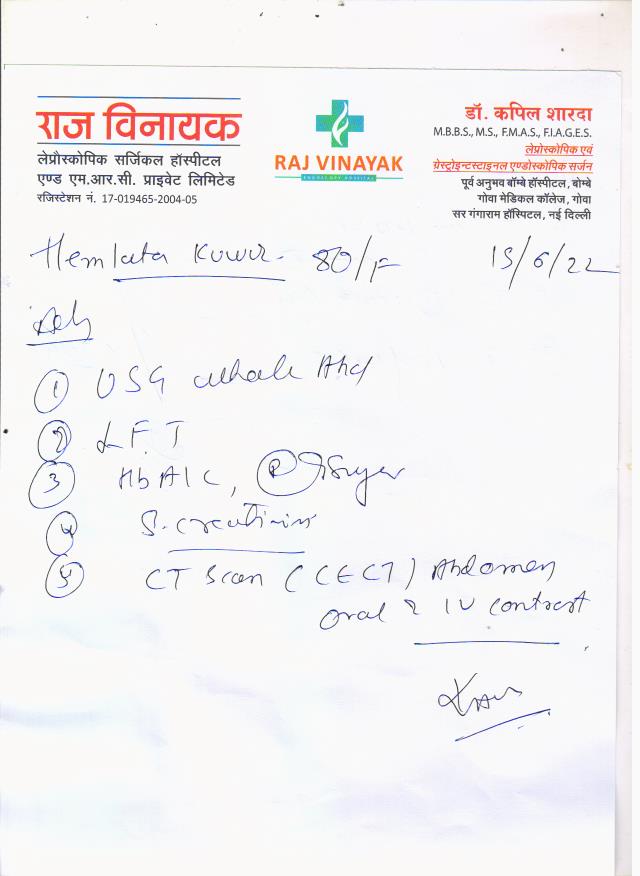 राज विनायक
लेप्रौस्कोपिक सर्जिकल हॉस्पीटल
एण्ड एम.आर.सी. प्राइवेट लिमिटेड
रजिस्टेशन नं. 17-019465-2004-05
RAJ VINAYAK
डॉ. कपिल शारदा
M.B.B.S., M.S., F.M.A.S., F.I.A.G.E.S.
लेप्रोस्कोपिक एवं
ग्रेस्ट्रोइन्टस्टाइनल एण्डोस्कोपिक सर्जन
पूर्व अनुभव बॉम्बे हॉस्पीटल, बोम्बे
गोवा मेडिकल कॉलेज, गोवा
सर गंगाराम हॉस्पिटल, नई दिल्ली
Hemlata Kuwr 80/F 15/6/22
Adv
① USG whole Abd
② L.F.T
③ HbA1C, Ⓡ Sugar
④ S. creatinin
⑤ CT Scan (CECT) Abdomen
oral & IV contrast